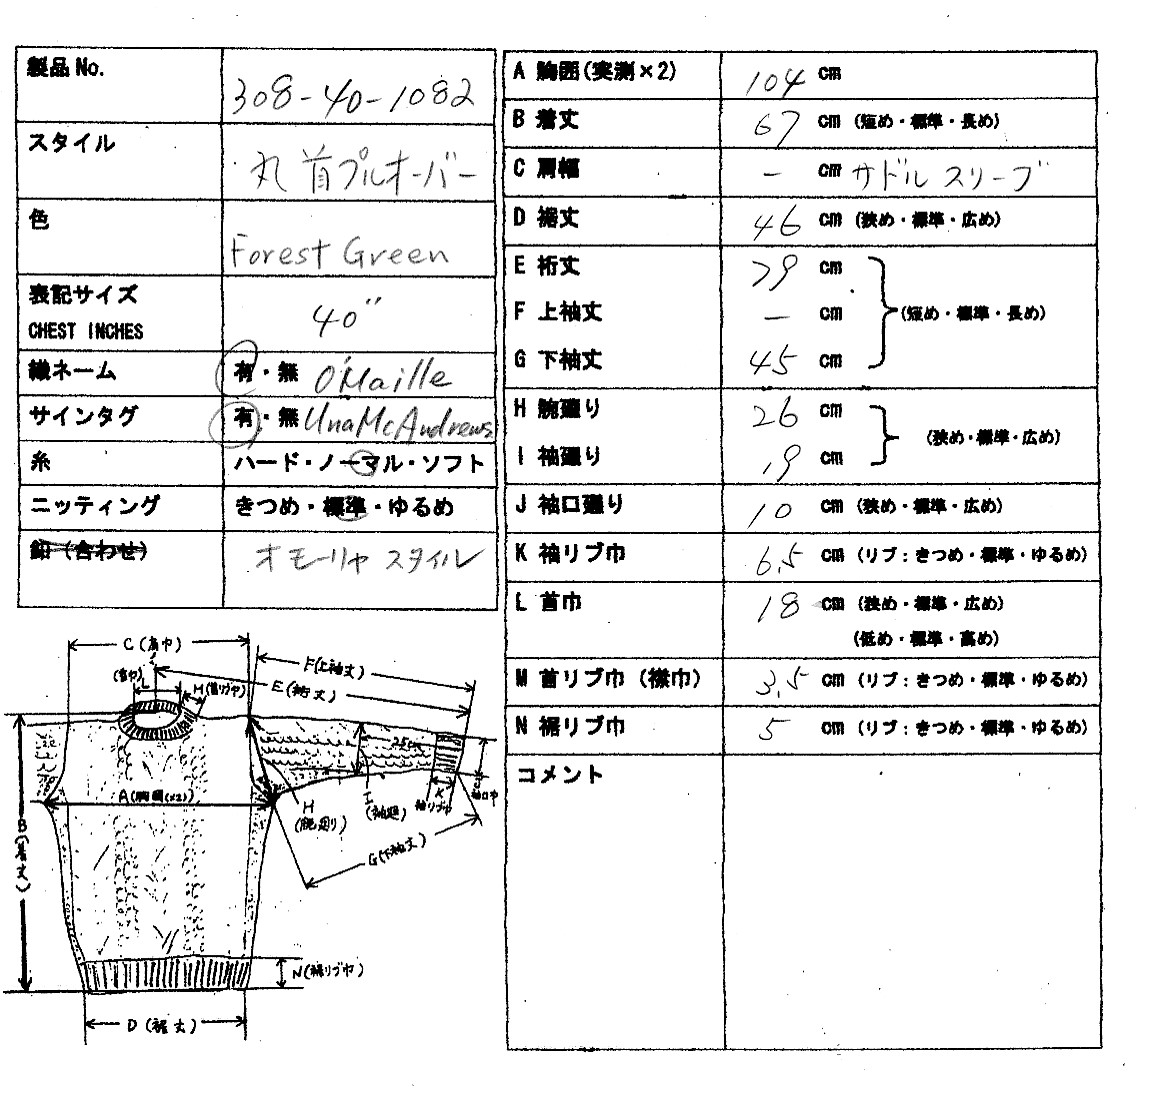 製品No. 308-40-1082
スタイル 丸首プルオーバー
色 Forest Green
表記サイズ
CHEST INCHES 40"
織ネーム 有・無 O'Maille
サインタグ 有・無 Una McAndrews
糸 ハード・ノーマル・ソフト
ニッティング きつめ・標準・ゆるめ
釦（合わせ） オモーリャ スタイル
A 胸囲(実測×2) 104 cm
B 着丈 67 cm (短め・標準・長め)
C 肩幅 - cm サドルスリーブ
D 裾丈 46 cm (狭め・標準・広め)
E 裄丈 79 cm
F 上袖丈 - cm (短め・標準・長め)
G 下袖丈 45 cm
H 腕廻り 26 cm
(狭め・標準・広め)
I 袖廻り 19 cm
J 袖口廻り 10 cm (狭め・標準・広め)
K 袖リブ巾 6.5 cm (リブ：きつめ・標準・ゆるめ)
L 首巾 18 cm (狭め・標準・広め)
(低め・標準・高め)
M 首リブ巾（襟巾） 3.5 cm (リブ：きつめ・標準・ゆるめ)
N 裾リブ巾 5 cm (リブ：きつめ・標準・ゆるめ)
コメント
C (肩巾)
F(上袖丈)
E (裄丈)
(首巾) L
M(首リブ巾)
A (胸囲(×2))
B(着丈)
H (腕廻り)
I (袖廻)
K 袖リブ巾
J 袖口巾
G(下袖丈)
N(裾リブ巾)
D (裾丈)